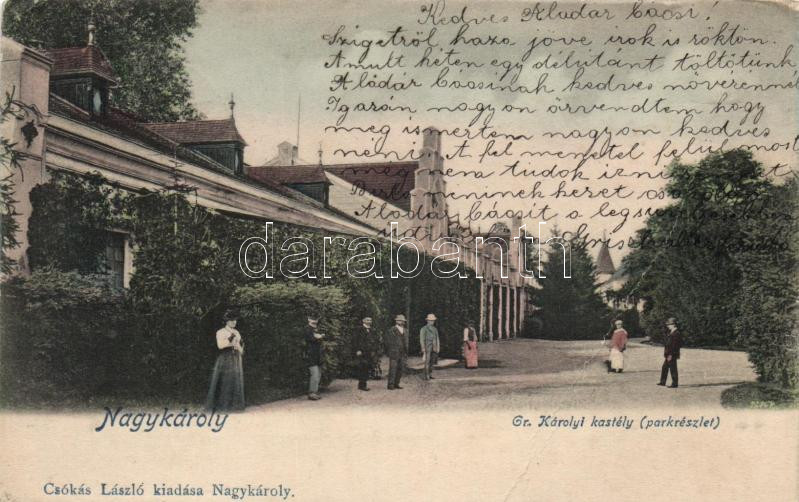 Kedves Aladár bácsi!
Szigetről haza jöve irok is rögtön.
A mult héten egy délutánt töltöttünk
Aladár bácsinak kedves nővérennél
Igazán nagyon örvendtem hogy
meg ismertem nagyon kedves
néni. A fel menetel felül most
meg nem tudok izni
kezet
Aladár bácsit a legszivesebben
darabanth
Nagykároly
Gr. Károlyi kastély (parkrészlet)
Csókás László kiadása Nagykároly.